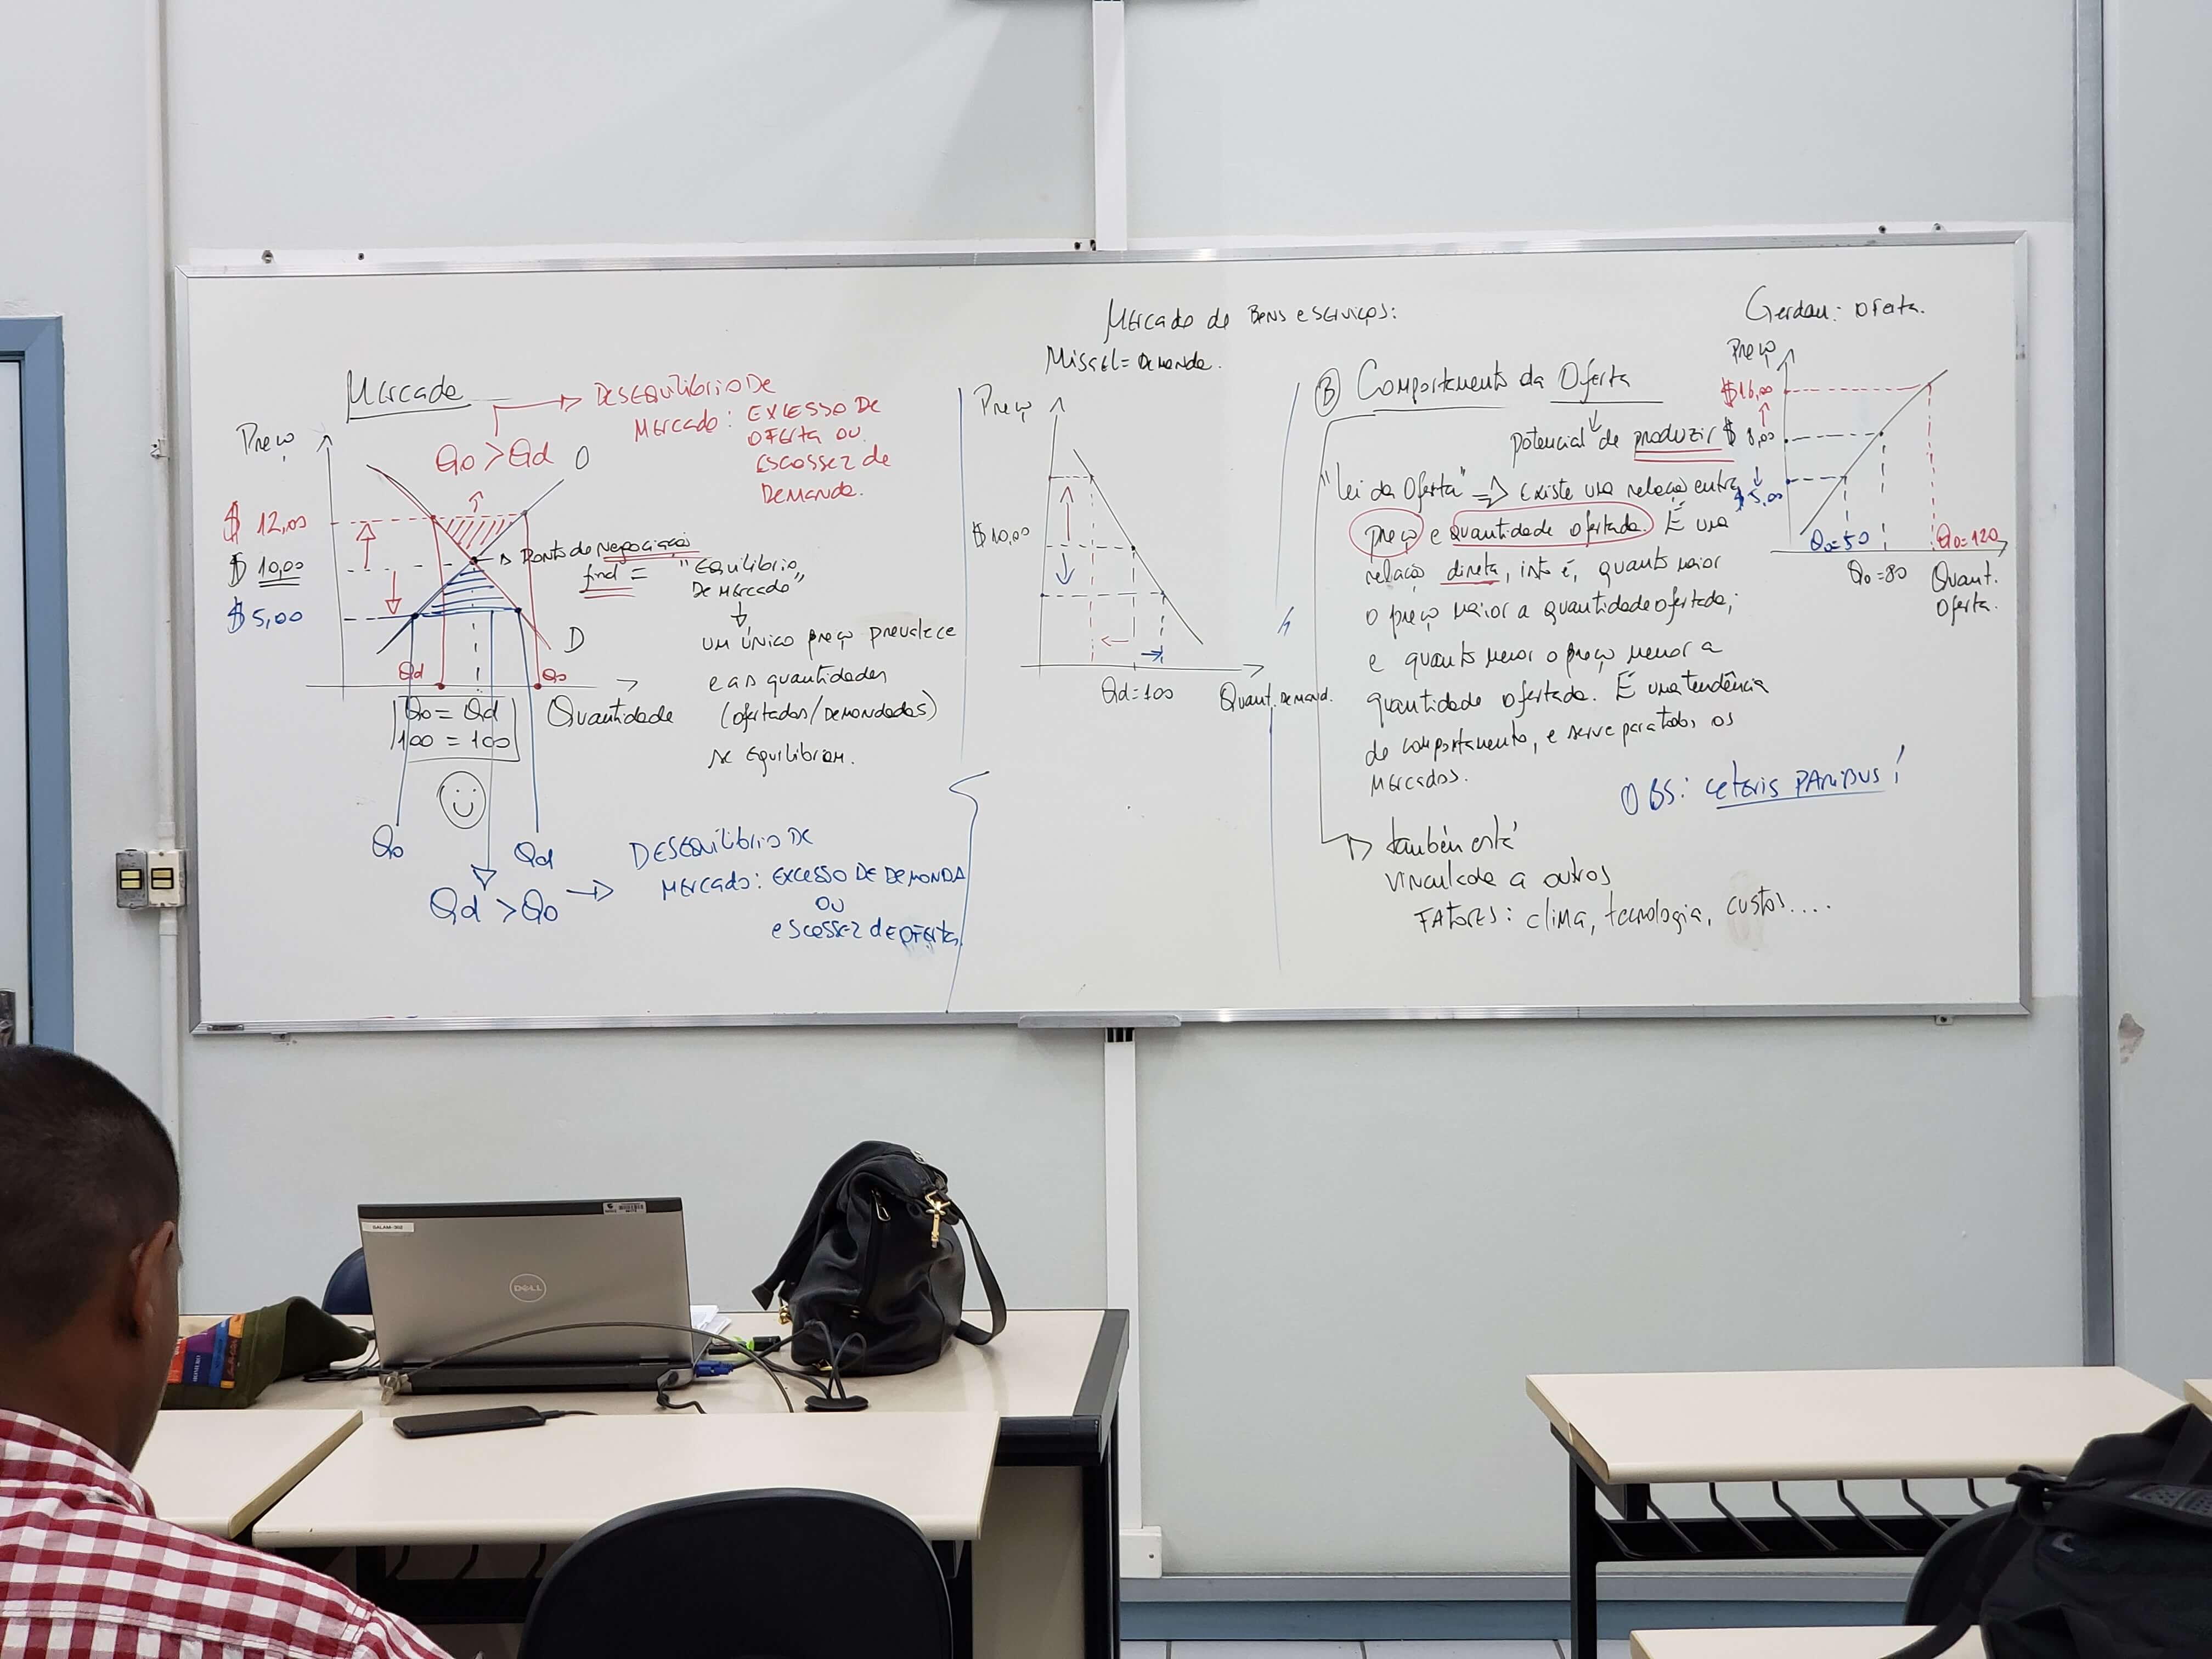 Mercado
DESEQUILÍBRIO DE
MERCADO: EXCESSO DE
OFERTA OU
ESCASSEZ DE
DEMANDA.
Preço
Qo > Qd
O
$ 12,00
$ 10,00
$ 5,00
Ponto de negociação
final = "Equilíbrio
De Mercado"
um único preço prevalece
e as quantidades
(ofertadas/Demandadas)
se equilibram.
D
Qd
Qo
Qo = Qd
100 = 100
Quantidade
Qo
Qd
Qd > Qo
DESEQUILÍBRIO DE
MERCADO: EXCESSO DE DEMANDA
OU
escassez de oferta.
Mercado de Bens e Serviços:
Missel = Demanda.
Preço
$ 10,00
Qd = 100
Quant. Demand.
B Comportamento da Oferta
potencial de produzir
"Lei da Oferta" => Existe uma relação entre
preço e quantidade ofertada. É uma
relação direta, isto é, quanto maior
o preço maior a quantidade ofertada;
e quanto menor o preço menor a
quantidade ofertada. É uma tendência
de comportamento, e serve para todos os
Mercados.
OBS: ceteris PARIBUS!
também está
vinculada a outros
FATORES: clima, tecnologia, custos....
Gerdau: Oferta.
Preço
$ 16,00
$ 8,00
$ 5,00
Qo = 50
Qo = 120
Qo = 80
Quant.
Oferta.
SALAM-302
DELL